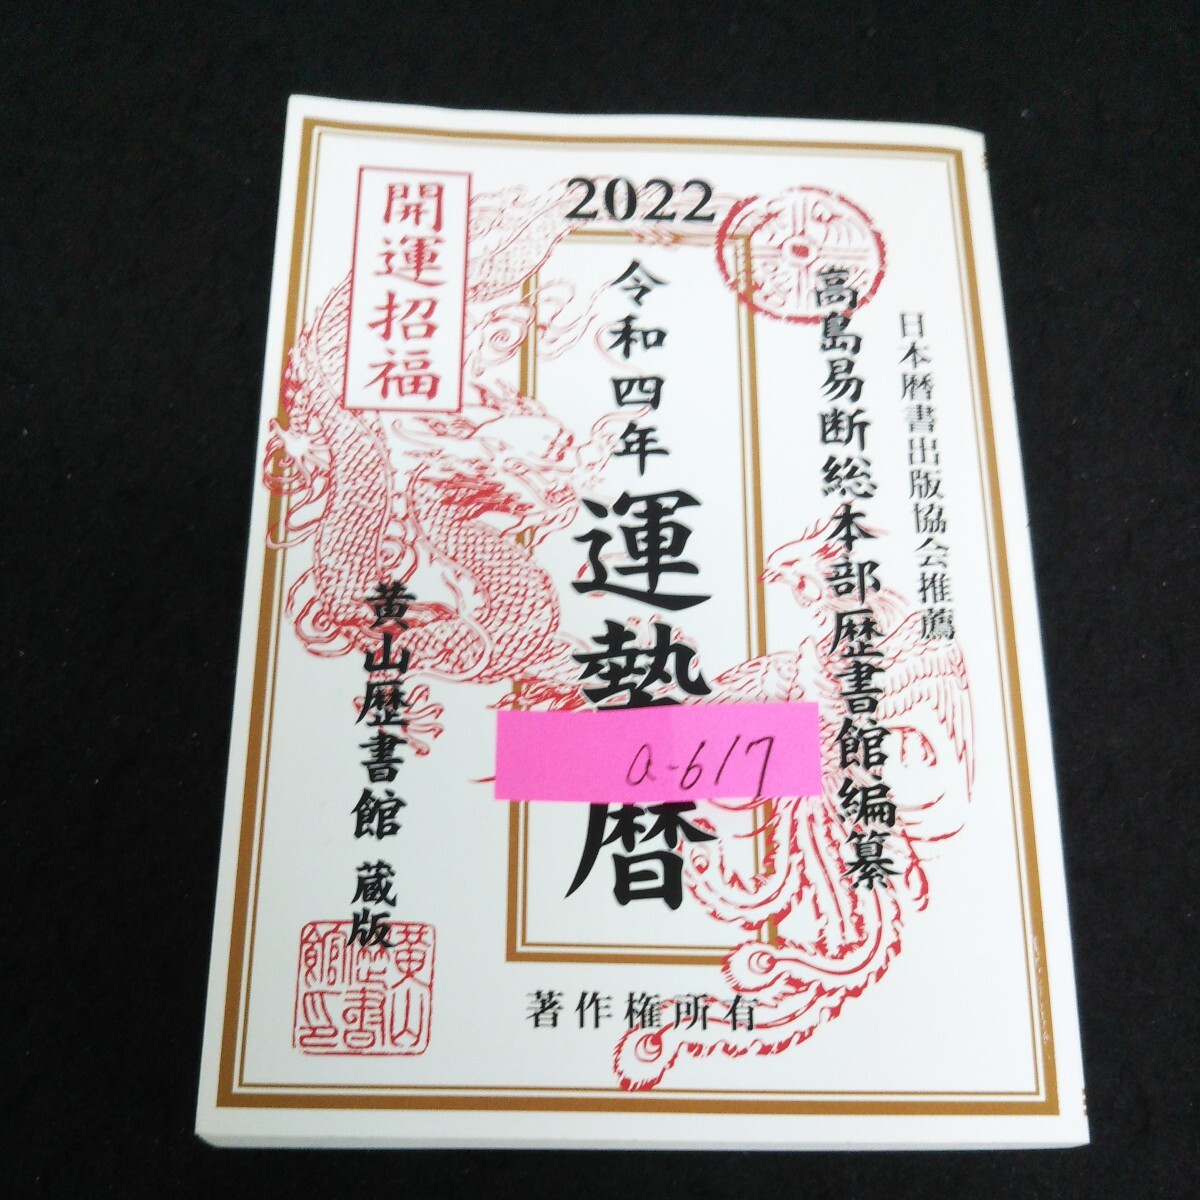 2022
日本暦書出版協会推薦
高島易断総本部歴書館編纂
令和四年 運勢暦
開運招福
黄山歴書館 蔵版
黄山歴書館印
著作権所有
a-617